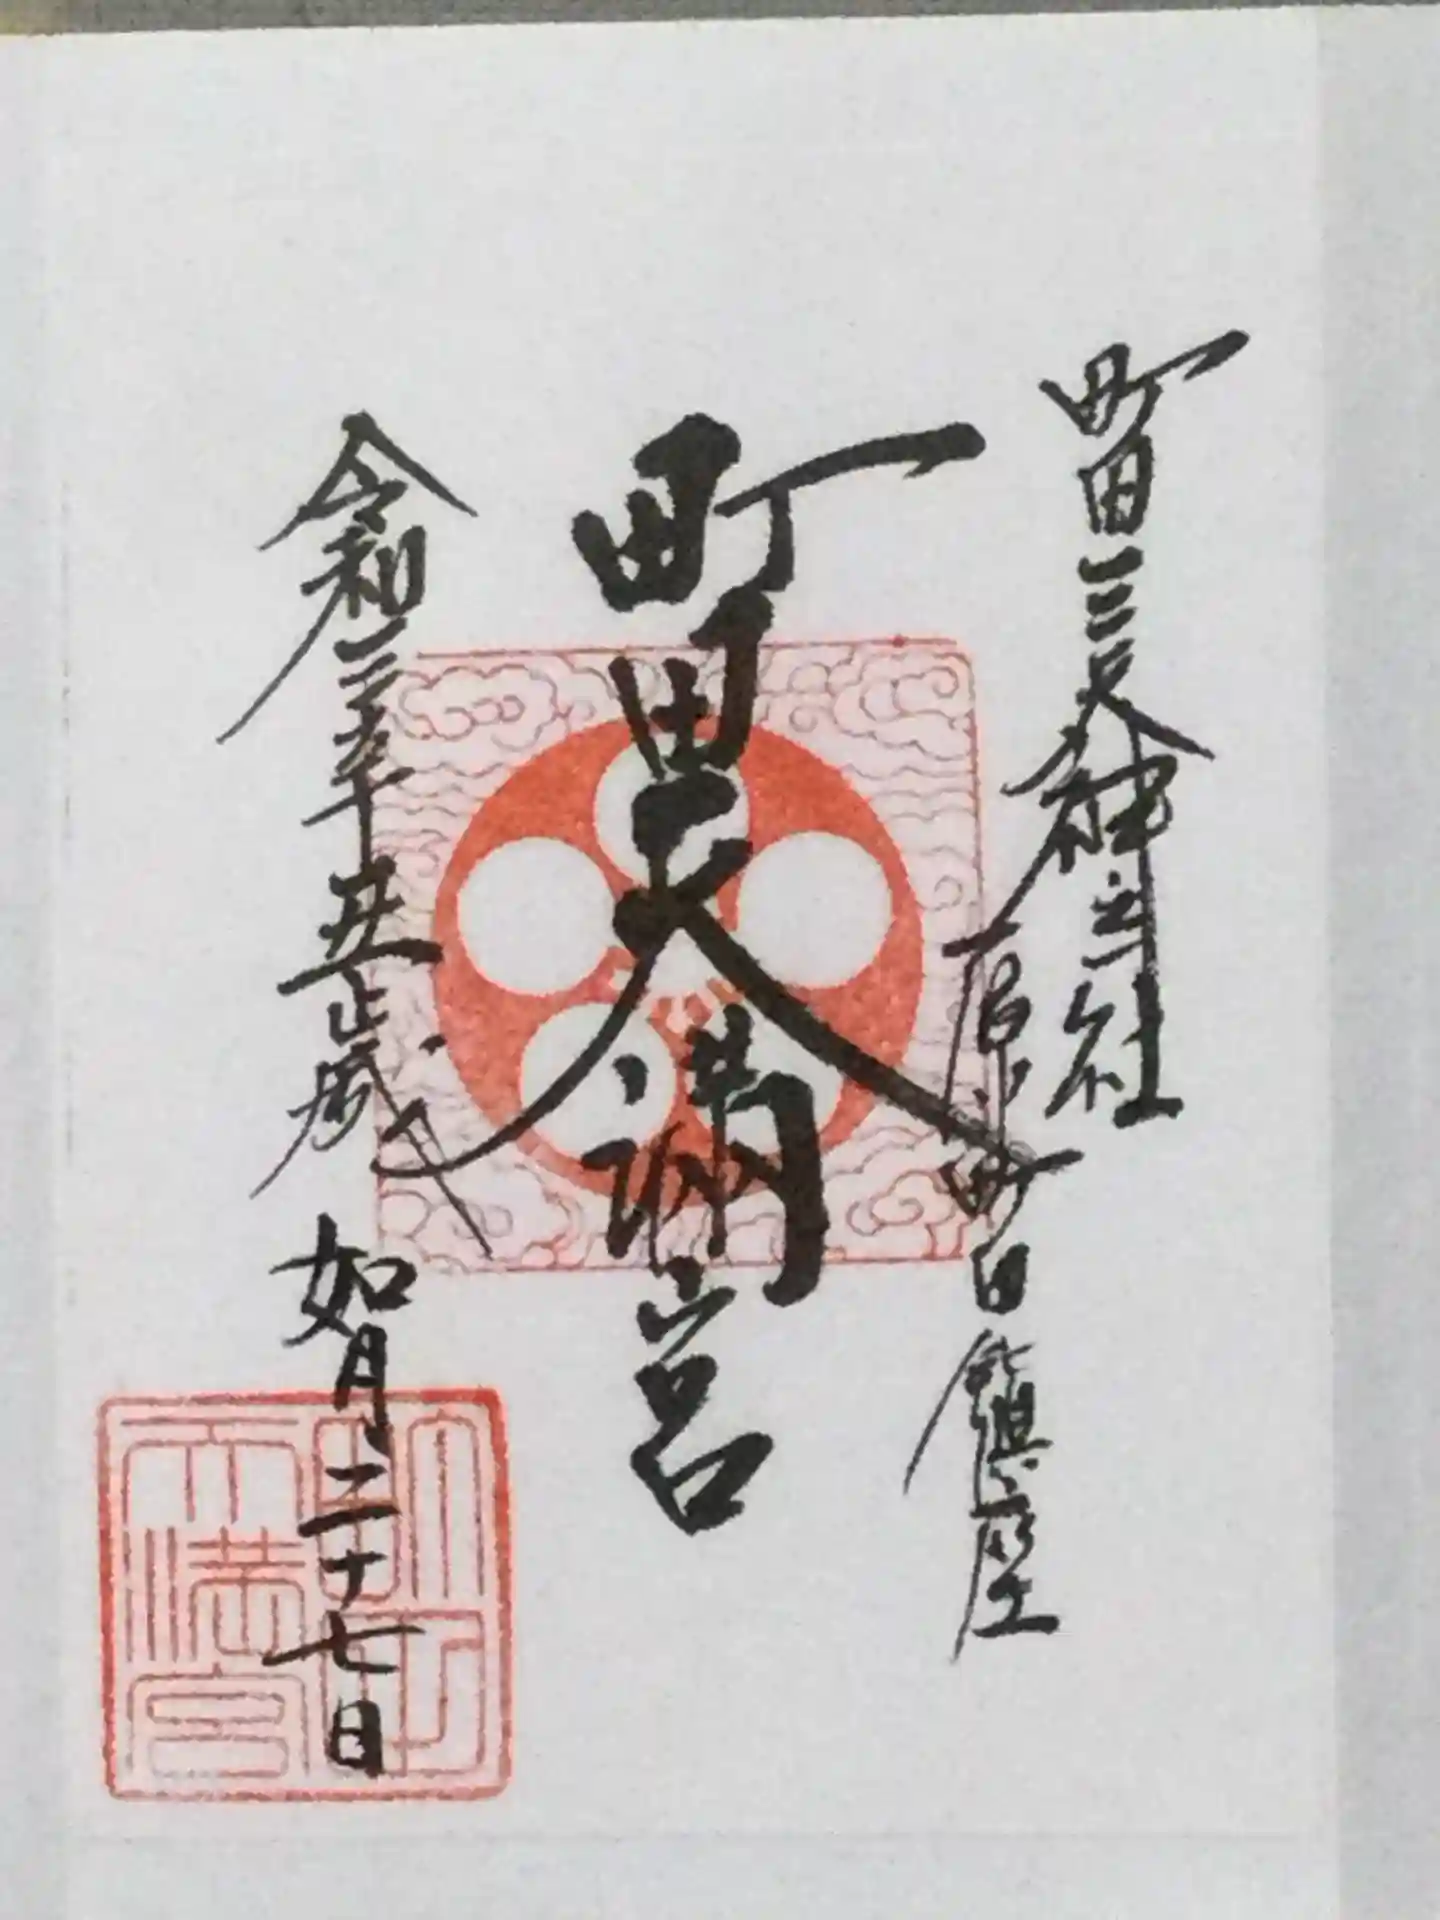 町田三天神之社
原町田鎮座
町田天満宮
令和三年丑歳
如月二十七日
天満宮